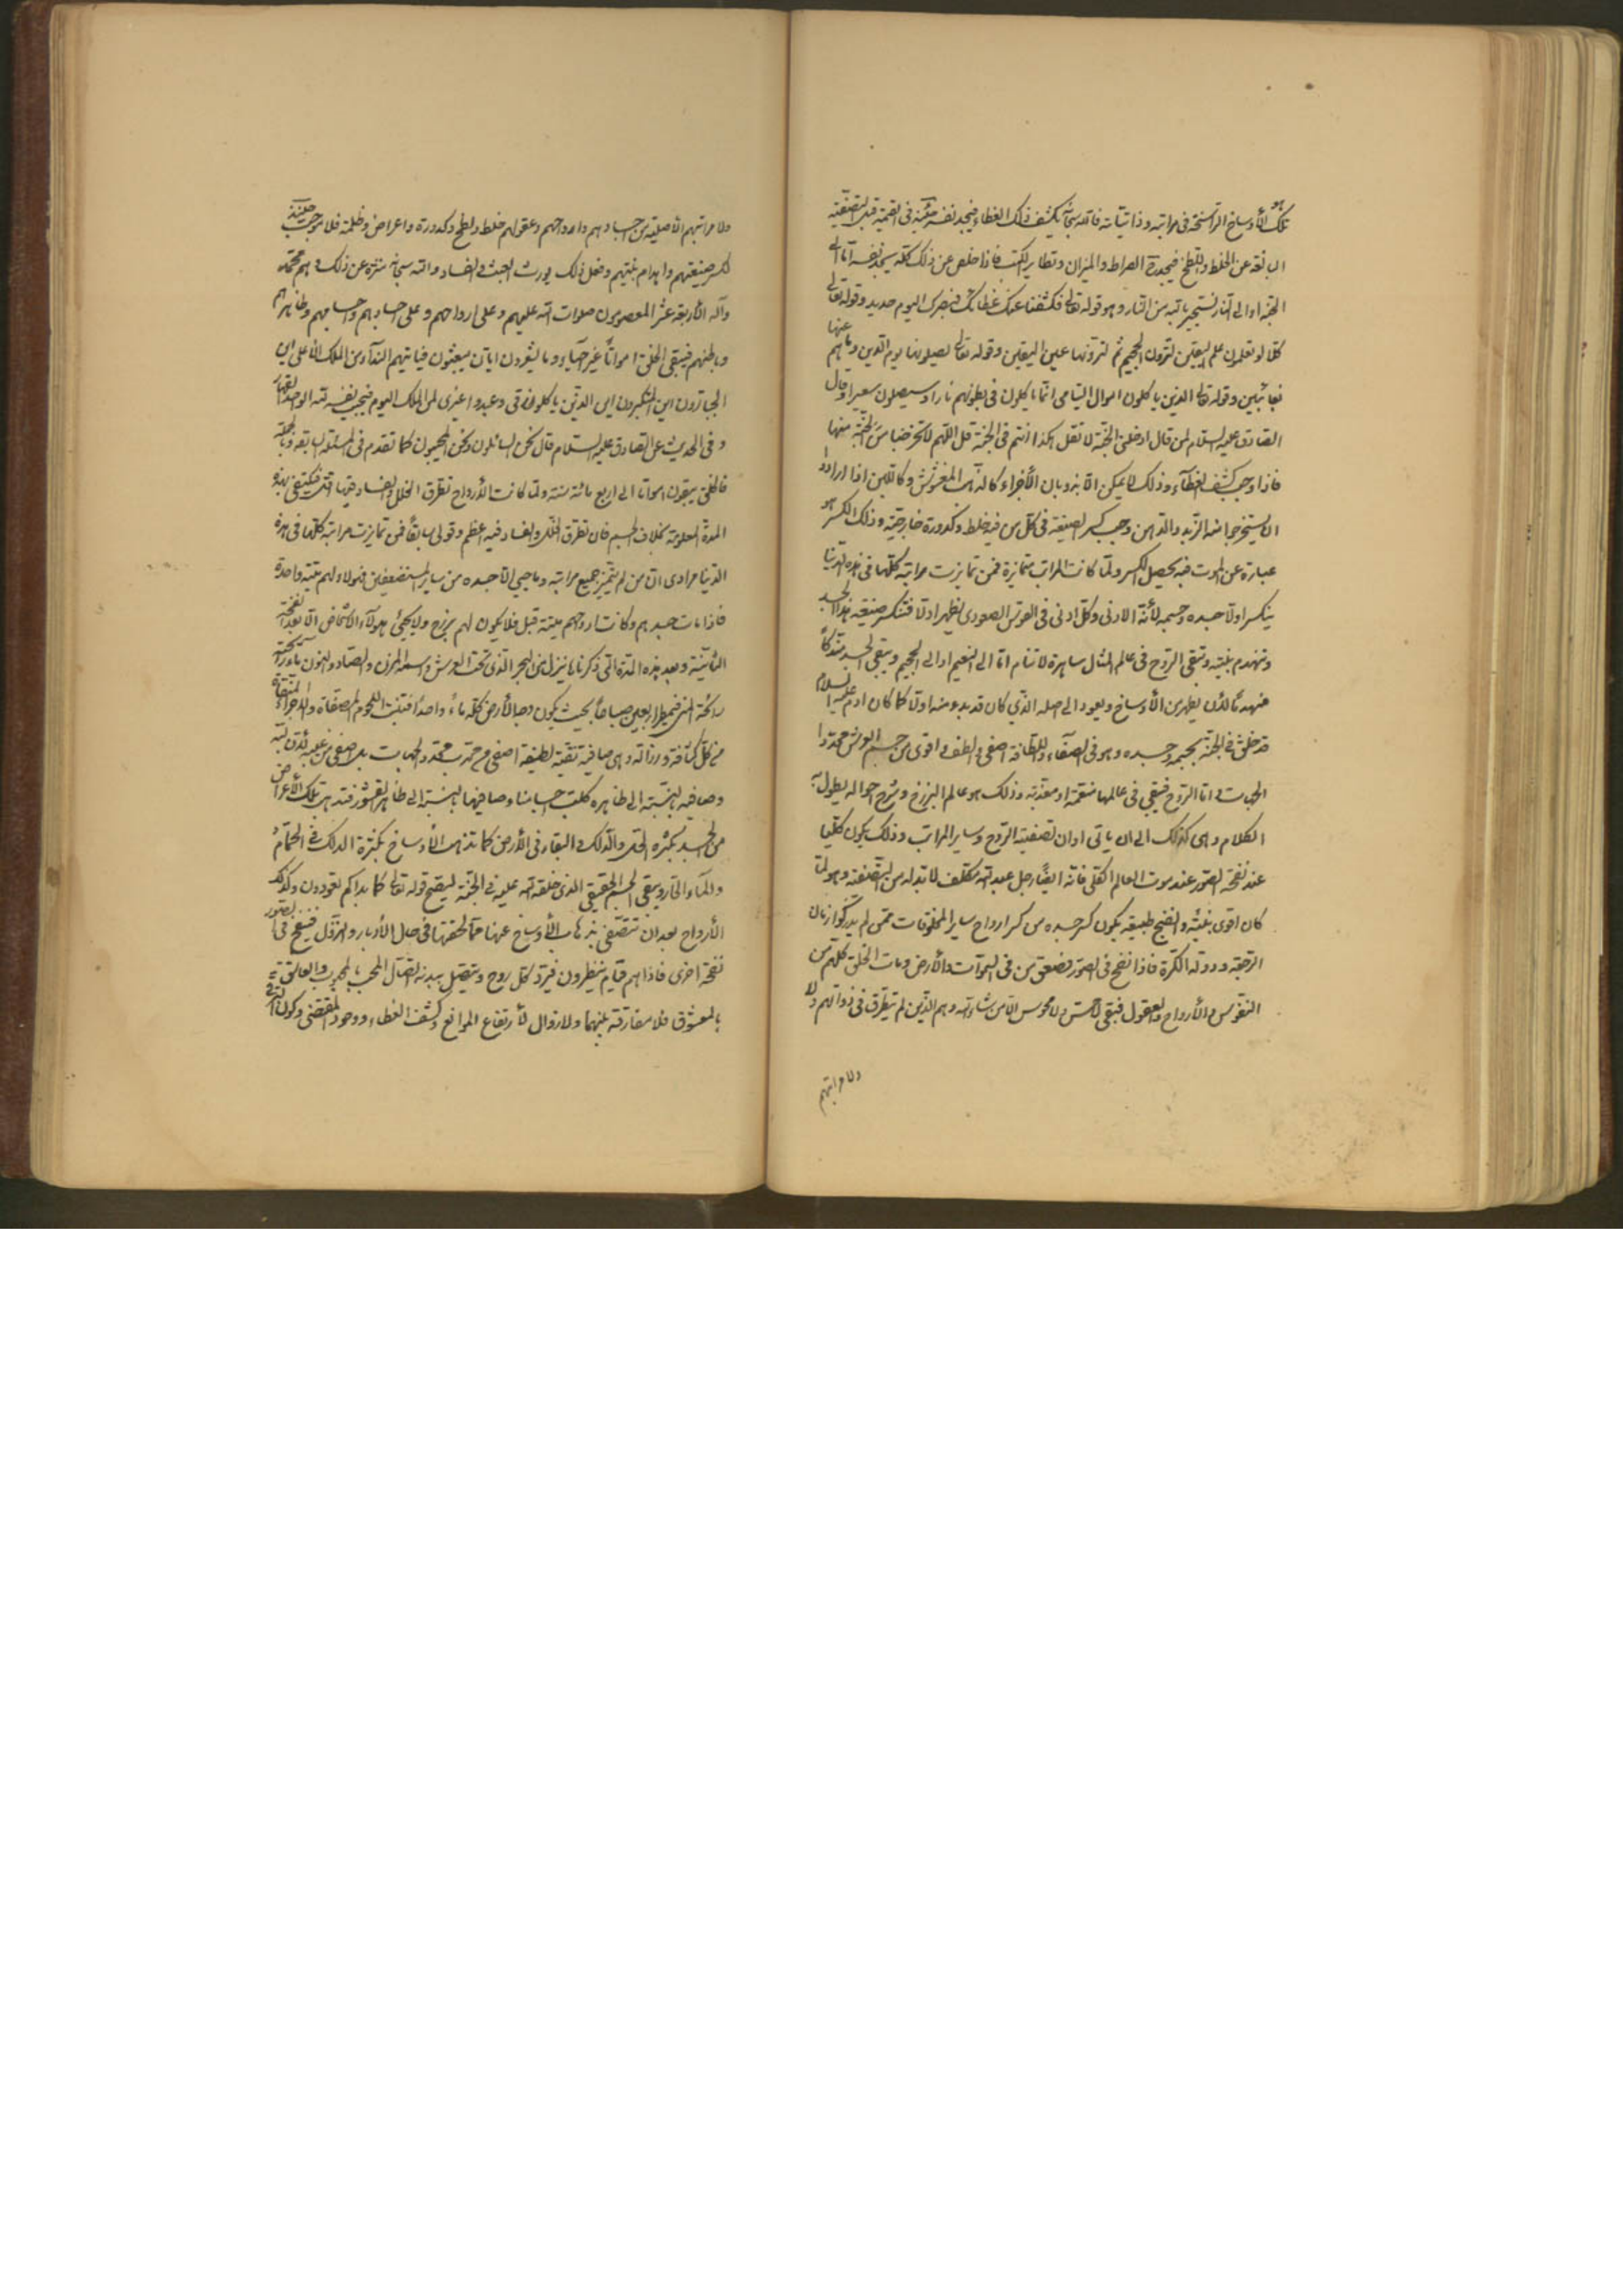 تلك الأوساخ الراسخة في مراتبه وذاتياته فالله سبحانه يكشف ذلك الغطاء فيجد نفسه في القيمة قبل التصفية
البالغة عن الخلط واللطخ فيجد الصراط والميزان وتطاير الكتب فاذا خلص عن ذلك كله يجد نفسه امّا الى
الجنة او الى النار نستجير بالله من النار وهو قوله تعالى فكشفنا عنك غطائك فبصرك اليوم حديد وقوله تعالى
كلا لو تعلمون علم اليقين لترون الجحيم ثم لترونها عين اليقين وقوله تعالى يصلونها يوم الدين وما هم عنها
بغائبين وقوله تعالى الذين ياكلون اموال اليتامى انما ياكلون في بطونهم نارا وسيصلون سعيرا وقال
الصادق عليه السلام لمن قال ادخلني الجنة لا تقل هكذا انتم في الجنة قل اللهم لا تخرجنا من الجنة
فاذا وجب كشف الغطآء وذلك لا يمكن الا بذوبان الأجزاء كالذهب المغشوش وكاللبن اذا ارادوا
ان يستخرجوا منه الزبد والدهن وجب كسر الصيغة في كل من فيه خلط وكدورة خارجية وذلك الكسر هو
عبارة عن الموت فبه يحصل الكسر ولما كانت المراتب متمايزة فمن تمايزت مراتبه كلها في هذه الدنيا
ينكسر اولا جسده وجسمه لأنه الادنى وكل ادنى في القوس الصعودي يظهر اولا فتنكسر صيغة هذا الجسد
وتنهدم بنيته وتبقى الروح في عالم المثال ساهرة لا تنام امّا الى النعيم او الى الجحيم ويبقى الجسد متفككاً
منهدما لأن يطهر من الأوساخ ويعود الى اصله الذي كان قد بدء منه اولا كما كان ادم عليه السلام
قد خلق في الجنة بجسمه وجسده وهو في الصفآء واللطافة اصفى والطف واقوى من جسم العرش محدد
الجهات امّا الروح فتبقى في عالمها منعمة او معذبة وذلك هو عالم البرزخ وشرح احواله يطول به
الكلام وهي كذلك الى ان ياتى اوان تصفية الروح وساير المراتب وذلك يكون كليا
عند نفخة الصور عند موت العالم الكلي فانه ايضا رجل عبد لله مكلف لا بد له من التصفية وهو لما
كان اقوى بنية وانضج طبيعة يكون كسر جسده من كسر ارواح ساير المخلوقات ممن لم يدركوا زمان
الرجعة ودولة الكرة فاذا نفخ في الصور فصعق من في السموات والأرض ومات الخلق كلهم من
النفوس والأرواح والعقول فيبقى لا حس ولا محسوس الا من شاء الله وهم الذين لم يتطرق في ذواتهم ولا
ولا مراتبهم
ولا مراتبهم الأصلية من اجسادهم وارواحهم وعقولهم خلط ولطخ وكدورة واعراض وظلمة فلا موجب حينئذ
لكسر صيغتهم وانهدام بنيتهم وفعل ذلك يورث العبث والفساد والله سبحانه منزه عن ذلك وهم محمد
وآله الأربعة عشر المعصومون صلوات الله عليهم وعلى ارواحهم وعلى اجسادهم واجسامهم وظاهرهم
وباطنهم فيبقى الخلق امواتاً غير احيآء وما يشعرون ايان يبعثون فياتيهم الندآء من الملك العلى اين
الجبارون اين المتكبرون اين الذين ياكلون رزقي وعبدوا غيرى لمن الملك اليوم فيجيب نفسه لله الواحد القهار
وفي الحديث عن الصادق عليه السلام قال نحن السائلون ونحن المجيبون كما تقدم في المسئلة السابقة وبالجملة
فالخلق يبقون امواتا الى اربع مائة سنة ولما كانت الأرواح تطرق الخلل والفساد فيها اقل فيكتفى بهذه
المدة المعلومة بخلاف الجسم فان تطرق الخلل والفساد فيه اعظم وقولي سابقاً فمن تمايزت مراتبه كلها في هذه
الدنيا مرادى ان من لم يتميز جميع مراتبه وما حيي الا جسده من ساير المستضعفين فهؤلاء لهم ميتة واحدة
فاذا مات جسدهم وكانت ارواحهم ميتة قبل فلا يكون لهم برزخ ولا يحيى هؤلآء الاشخاص الا بعد نفخة
الثانية وبعد هذه المدة التي ذكرنا ينزل من البحر الذي تحت العرش واسمه المزن والصاد والنون
رائحة المني فيمطر اربعين صباحاً بحيث يكون وجه الأرض كله ماء واحداً فتنبت اللحوم المصفاة والاجزاء المنتقاة
من كل كثافة ورذالة وهى صافية نقية لطيفة اصفى من محدب محدد الجهات بل اصفى من غيبه لأن نسبة
وصافيه بالنسبة الى ظاهره كلب اجسامنا وصافيها بالنسبة الى ظاهر القشور فتذهب تلك الأعراض
من الجسد بكثرة الحك والدلك والبقاء في الأرض كما تذهب الأوساخ بكثرة الدلك في الحمام
والمآء الحار ويبقى الجسم الحقيقي الذي خلقه الله عليه في الجنة ليصح قوله تعالى كما بدأكم تعودون وكذلك
الأرواح بعد ان تتصفى بذهاب الأوساخ عنها مما لحقتها في حال الأدبار والنزول فينفخ في الصور
نفخة اخرى فاذا هم قيام ينظرون فيرد كل روح ويتصل ببدنه اتصال المحب بالمحبوب والعاشق
بالمعشوق فلا مفارقة بينهما ولا زوال لأرتفاع الموانع وكشف الغطاء ووجود المقتضى